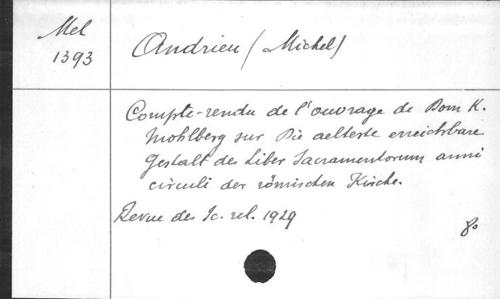 Mel
1393
Andrieu (Michel)
Compte-rendu de l'ouvrage de Dom K.
Mohlberg sur Die aelteste erreichbare
Gestalt des Liber Sacramentorum anni
circuli der römischen Kirche.
Revue des Sc. rel. 1929
8º